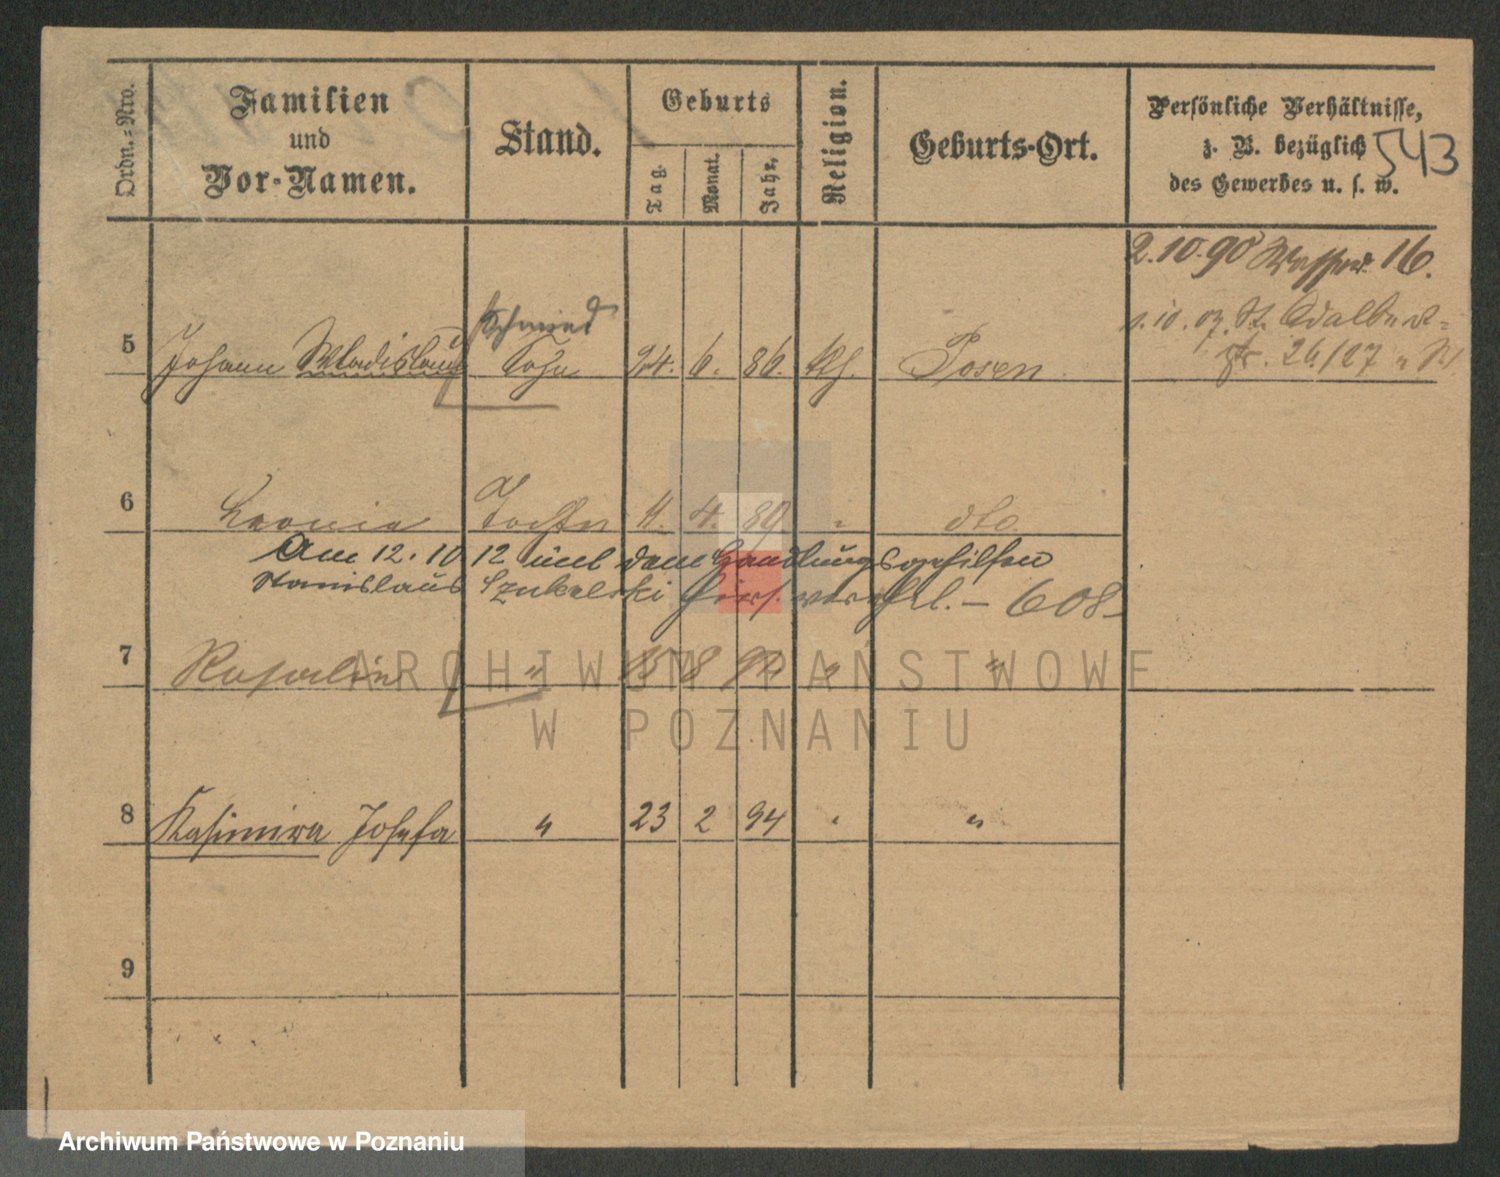 Ordn.-Nro.
Familien
und
Vor-Namen.
Stand.
Geburts
Tag.
Monat.
Jahr.
Religion.
Geburts-Ort.
Persönliche Verhältnisse,
z. B. bezüglich
des Gewerbes u. s. w.
543
2.10.90 16.
Schmied
1.10.07. St. Adalbert-
str. 26/27
5 Johann Wladislaus Sohn 24. 6. 86. kth. Posen
6 Leonie Tochter 11. 4. 89 " dto.
Am 12.10 12 mit dem Handlungsgehilfen
Stanislaus Szukalski hies. verehel. — 608
7 Rosalie " 15 8 92 " "
8 Kasimira Josefa " 23 2 94 " "
9
ARCHIWUM PAŃSTWOWE
W POZNANIU
Archiwum Państwowe w Poznaniu